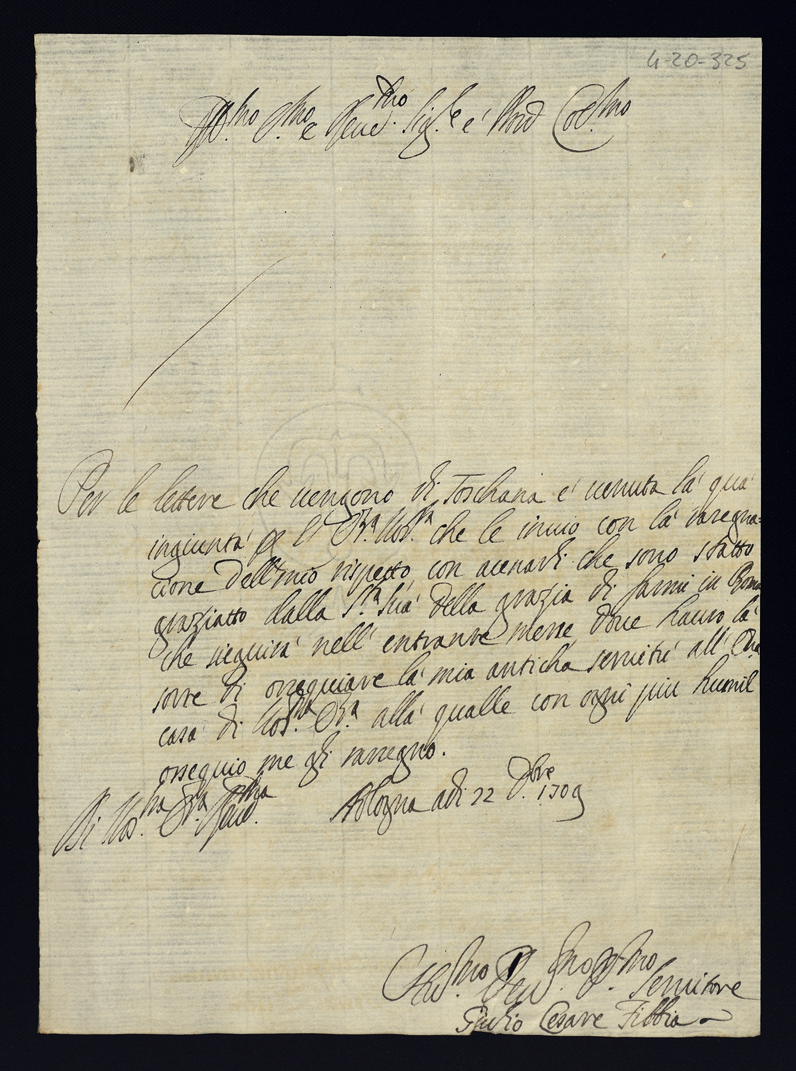 4-20-325
Ill.mo e Reue.mo Sig.re e Pron Col.mo
Per le lettere che uengono di Toschana é uenuta la qua
ingiunta p l'Ill.a Vos.ra che le inuio con la rasegna=
cione dell'mio rispetto, con acenardi che sono statto
graziatto dalla S.a Sua della grazia di farmi in Roma
che sieguira nell' entrante messe doue hauro la
sorte di osseguiare la mia anticha seruitú all'
casa di Vos.ra Ill.a alla qualle con ogni piu humil
osseguio me gli rassegno.
Di Vos.ra Ill.a Reue.ma Bologna adi 22 Dbre 1709
Seruitore
Giulio Cesare Fibbia